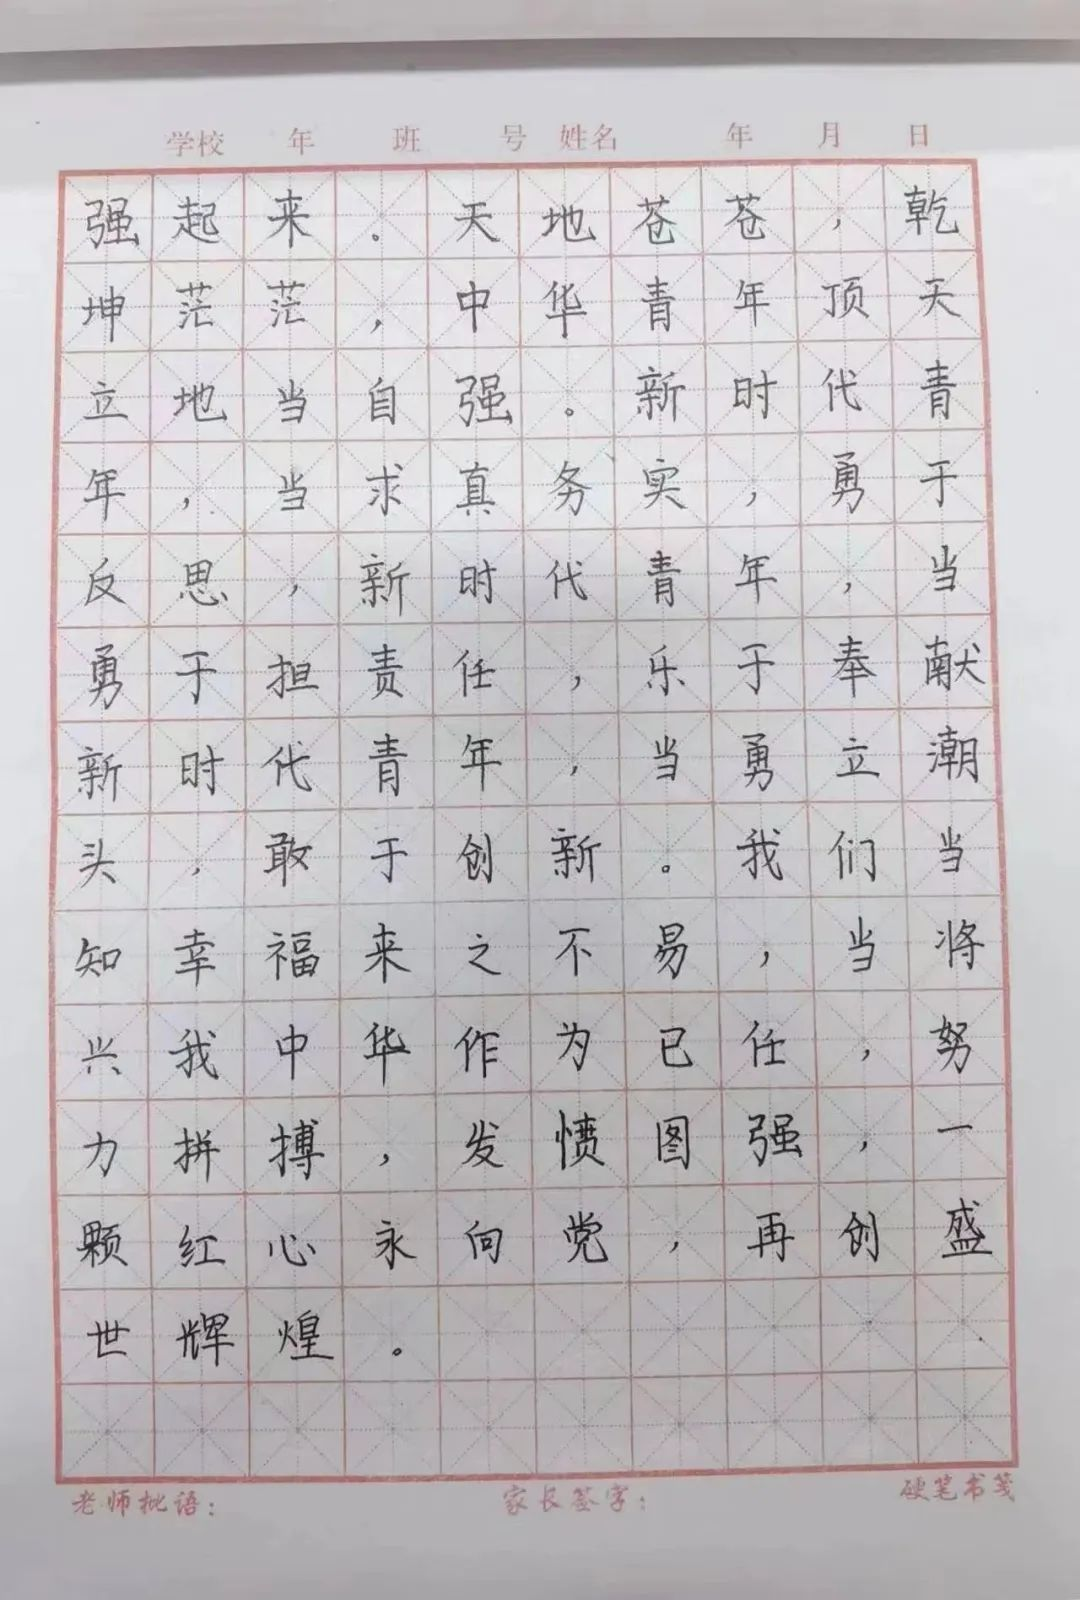 学校 年 班 号 姓名 年 月 日
强起来.天地苍苍,乾
坤茫茫,中华青年顶天
立地当自强。新时代青
年,当求真务实,勇于
反思,新时代青年,当
勇于担责任,乐于奉献
新时代青年,当勇立潮
头,敢于创新。我们当
知幸福来之不易,当将
兴我中华作为已任,努
力拼搏,发愤图强,一
颗红心永向党,再创盛
世辉煌。
老师批语: 家长签字: 硬笔书笺